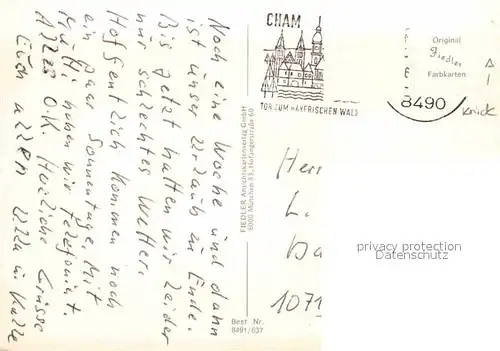 Noch eine Woche und dann
ist unser Urlaub zu Ende.
Bis jetzt hatten wir leider
nur schlechtes Wetter.
Hoffentlich kommen noch
ein paar Sonnentage. Mit
Mutti haben wir telefoniert.
Alles O.K. Herzliche Grüsse
Euch allen
CHAM
TOR ZUM BAYERISCHEN WALD
8490
Original
Fiedler
Farbkarten
FIEDLER Ansichtskartenverlag GmbH
8000 München 83,
Best Nr.
8491/637
Herr
L.
Da
1071
privacy protection
DATENSCHUTZ